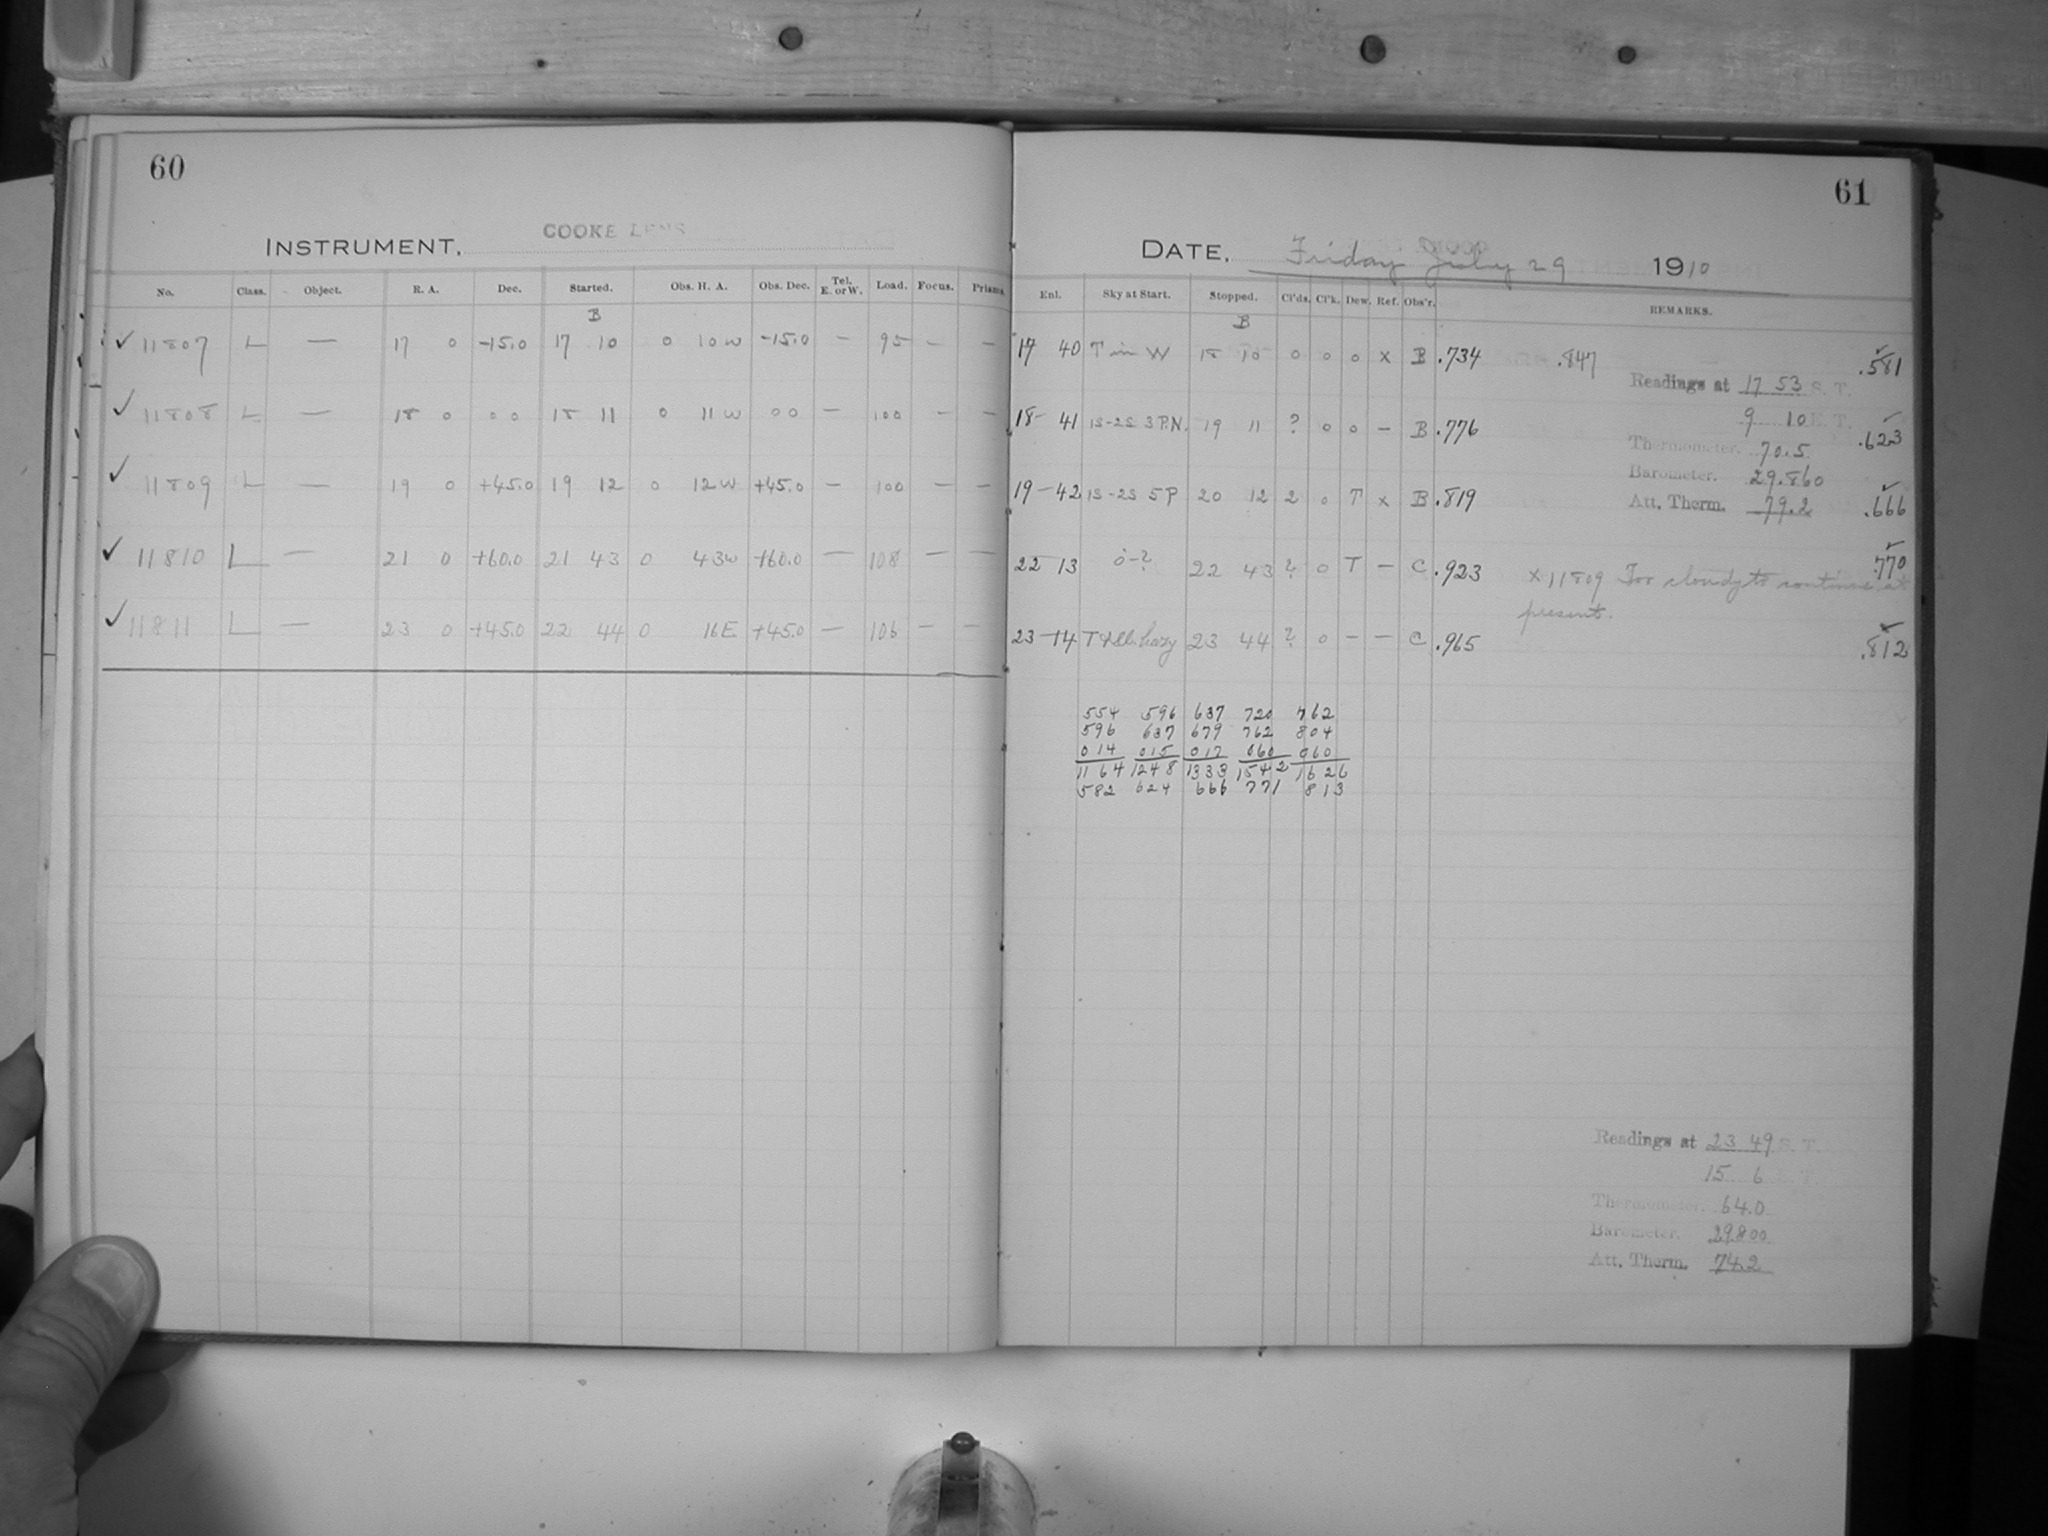 60
INSTRUMENT, COOKE LENS
No. Class. Object. R. A. Dec. Started. Obs. H. A. Obs. Dec. Tel. E. or W. Load. Focus. Prisms.
B
✓ 11807 L — 17 0 -15.0 17 10 0 10 W -15.0 — 95 — —
✓ 11808 L — 18 0 0 0 18 11 0 11 W 0 0 — 100 — —
✓ 11809 L — 19 0 +45.0 19 12 0 12 W +45.0 — 100 — —
✓ 11810 L — 21 0 +60.0 21 43 0 43 W +60.0 — 108 — —
✓ 11811 L — 23 0 +45.0 22 44 0 16 E +45.0 — 106 — —
61
DATE, Friday July 29 1910
Enl. Sky at Start. Stopped. Cl'ds. Cl'k. Dew. Ref. Obs'r. REMARKS.
B
17 40 T in W 18 10 0 0 0 x B .734 .847 .581
Readings at 17 53 S. T.
18-41 1S-2S 3 P.N. 19 11 ? 0 0 — B .776 9 10 E. T. .623
Thermometer. 70.5
Barometer. 29.860
19-42 1S-2S 5 P 20 12 2 0 T x B .819 Att. Therm. 79.2 .666
22 13 0-? 22 43 ? 0 T — C .923 x 11809 Too cloudy to continue at .770
present.
23-14 hazy 23 44 ? 0 — — C .965 .812
554 596 637 720 762
596 637 679 762 804
014 015 017 060 060
1164 1248 1333 1542 1626
582 624 666 771 813
Readings at 23 49 S. T.
15 6 E. T.
Thermometer. 64.0
Barometer. 29.800
Att. Therm. 74.2